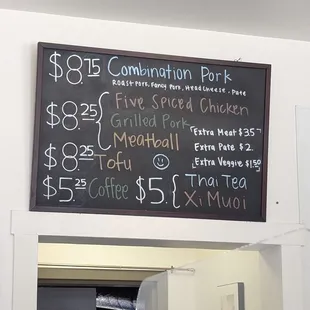 $8.75 Combination Pork
Roast Pork, Fancy Pork, Headcheese, Pate
$8.25 Five Spiced Chicken
Grilled Pork
Meatball
Extra Meat $3.5
Extra Pate $2.
Extra Veggie $1.50
$8.25 Tofu
$5.25 Coffee $5. Thai Tea
Xi Muoi